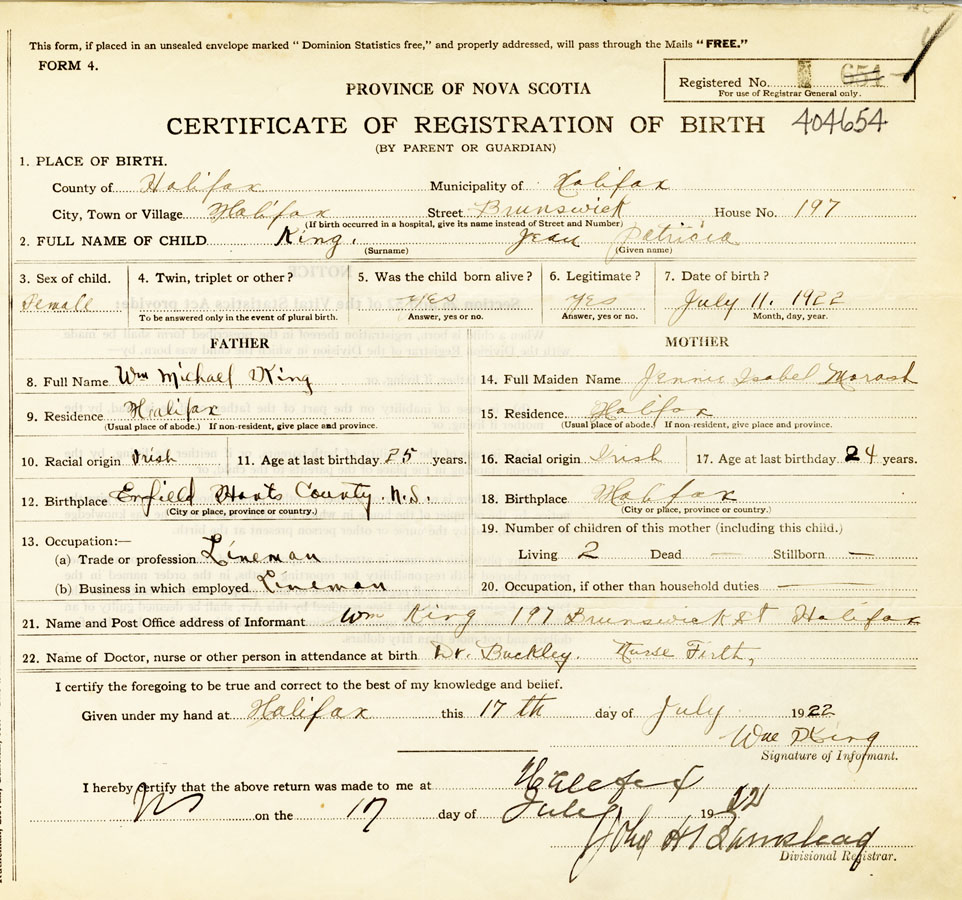 This form, if placed in an unsealed envelope marked " Dominion Statistics free," and properly addressed, will pass through the Mails "FREE."
FORM 4.
Registered No. 654
For use of Registrar General only.
PROVINCE OF NOVA SCOTIA
CERTIFICATE OF REGISTRATION OF BIRTH 404654
(BY PARENT OR GUARDIAN)
1. PLACE OF BIRTH.
County of Halifax Municipality of Halifax
City, Town or Village Halifax Street Brunswick House No. 197
(If birth occurred in a hospital, give its name instead of Street and Number)
2. FULL NAME OF CHILD King. Jean Patricia
(Surname) (Given name)
3. Sex of child. 4. Twin, triplet or other? 5. Was the child born alive? 6. Legitimate? 7. Date of birth?
Female yes yes July 11. 1922
To be answered only in the event of plural birth. Answer, yes or no. Answer, yes or no. Month, day, year.
FATHER MOTHER
8. Full Name Wm Michael King 14. Full Maiden Name Jennie Isabel
9. Residence Halifax 15. Residence. Halifax
(Usual place of abode.) If non-resident, give place and province. (Usual place of abode.) If non-resident, give place and province.
10. Racial origin Irish 11. Age at last birthday 25 years. 16. Racial origin Irish 17. Age at last birthday. 24 years.
12. Birthplace Enfield Hants County. N.S. 18. Birthplace Halifax
(City or place, province or country.) (City or place, province or country.)
19. Number of children of this mother (including this child.)
13. Occupation:—
Living 2 Dead — Stillborn —
(a) Trade or profession Lineman
(b) Business in which employed Lineman 20. Occupation, if other than household duties
21. Name and Post Office address of Informant Wm King 197 Brunswick St Halifax
22. Name of Doctor, nurse or other person in attendance at birth Dr. Buckley. Nurse Firth,
I certify the foregoing to be true and correct to the best of my knowledge and belief.
Given under my hand at Halifax this 17 th day of July 1922
Wm King
Signature of Informant.
I hereby certify that the above return was made to me at Halifax
NS on the 17 day of July 1922
John H
Divisional Registrar.